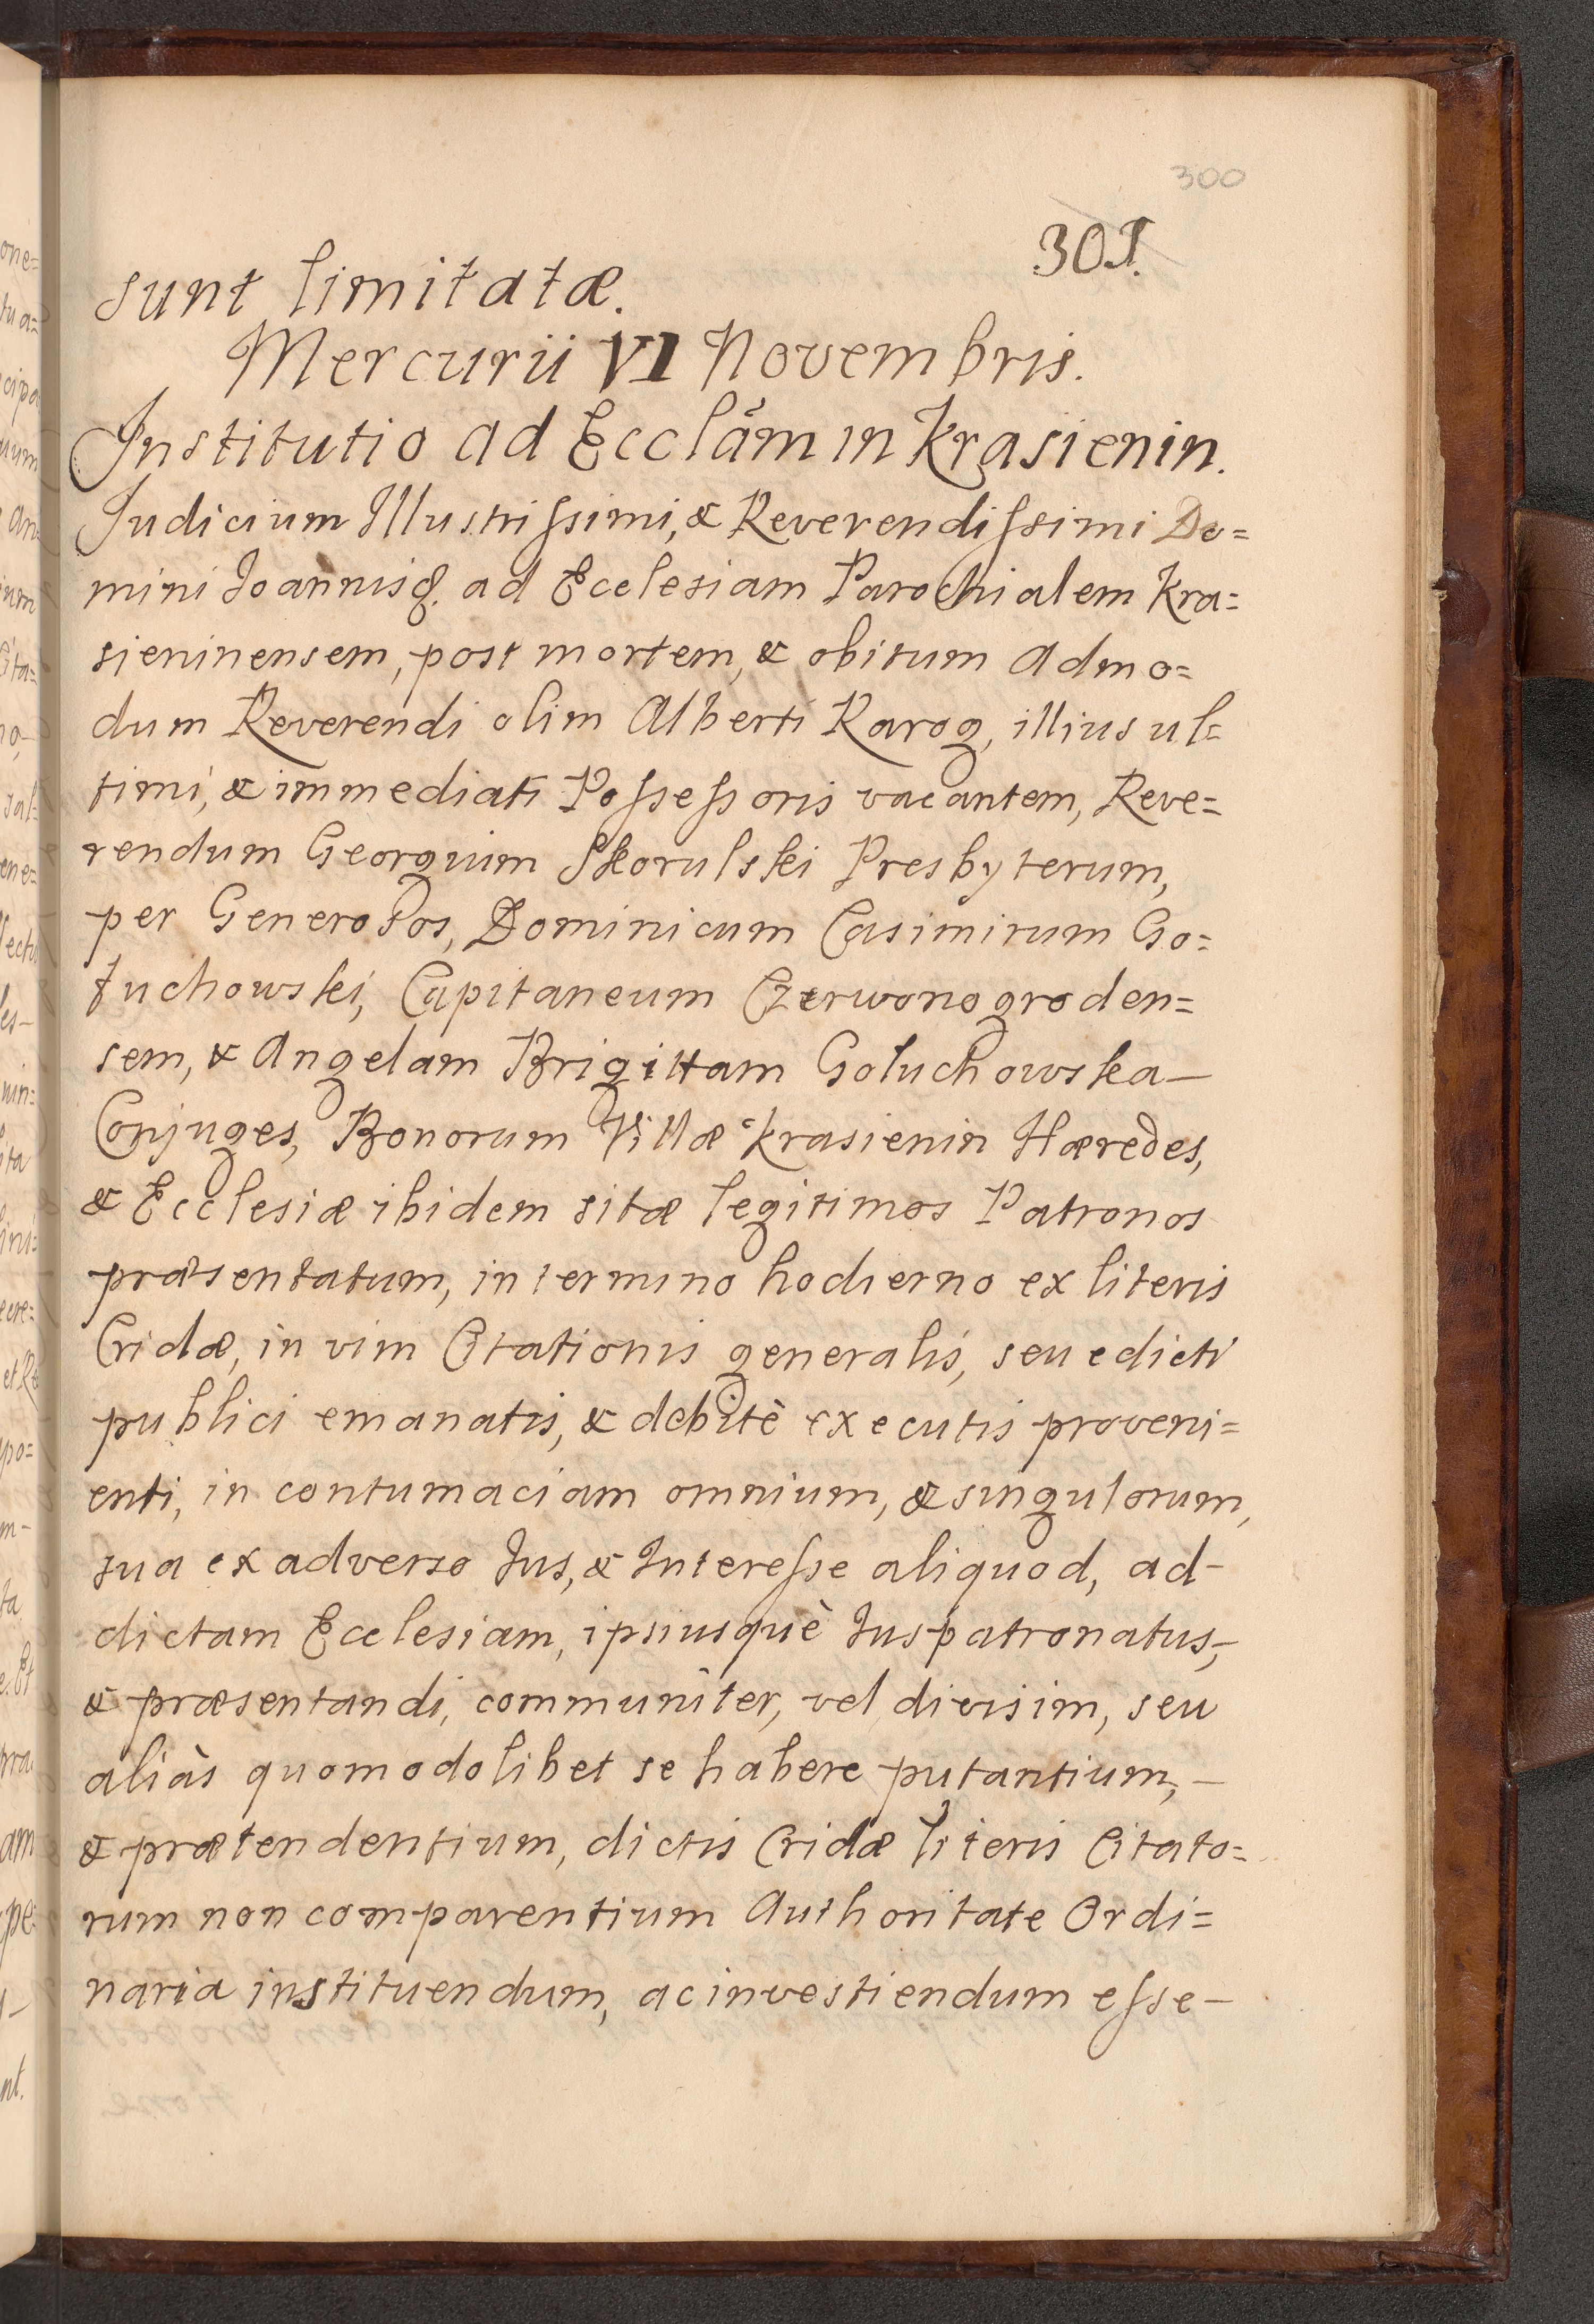 300
301.
sunt limitatæ.
Mercurii VI Novembris.
Institutio ad Ecclãm in Krasienin.
Judicium Illustrissimi, & Reverendissimi Do=
mini Joannis &. ad Ecclesiam Parochialem Kra=
sieninensem, post mortem, & obitum Admo=
dum Reverendi olim Alberti Karog, illius ul=
timi, & immediati Possessoris vacantem, Reve=
rendum Georgium Skorulski Presbyterum,
per Generosos, Dominicum Casimirum Go=
łuchowski, Capitaneum Czerwonogroden=
sem, & Angelam Brigittam Gołuchowska—
Conjuges, Bonorum Villæ Krasienin Hæredes,
& Ecclesiæ ibidem sitæ legitimos Patronos
præsentatum, in termino hodierno ex literis
Cridæ, in vim Citationis generalis, seu edicti
publici emanatis, & debitè executis proveni=
enti, in contumaciam omnium, & singulorum,
sua ex adverso Jus, & Interesse aliquod, ad-
dictam Ecclesiam, ipsiusquè Juspatronatus,—
& præsentandi, communiter, vel divisim, seu
aliàs quomodolibet se habere putantium,—
& prætendentium, dictis Cridæ literis Citato=
rum non comparentium Authoritate Ordi=
naria instituendum, ac investiendum esse—